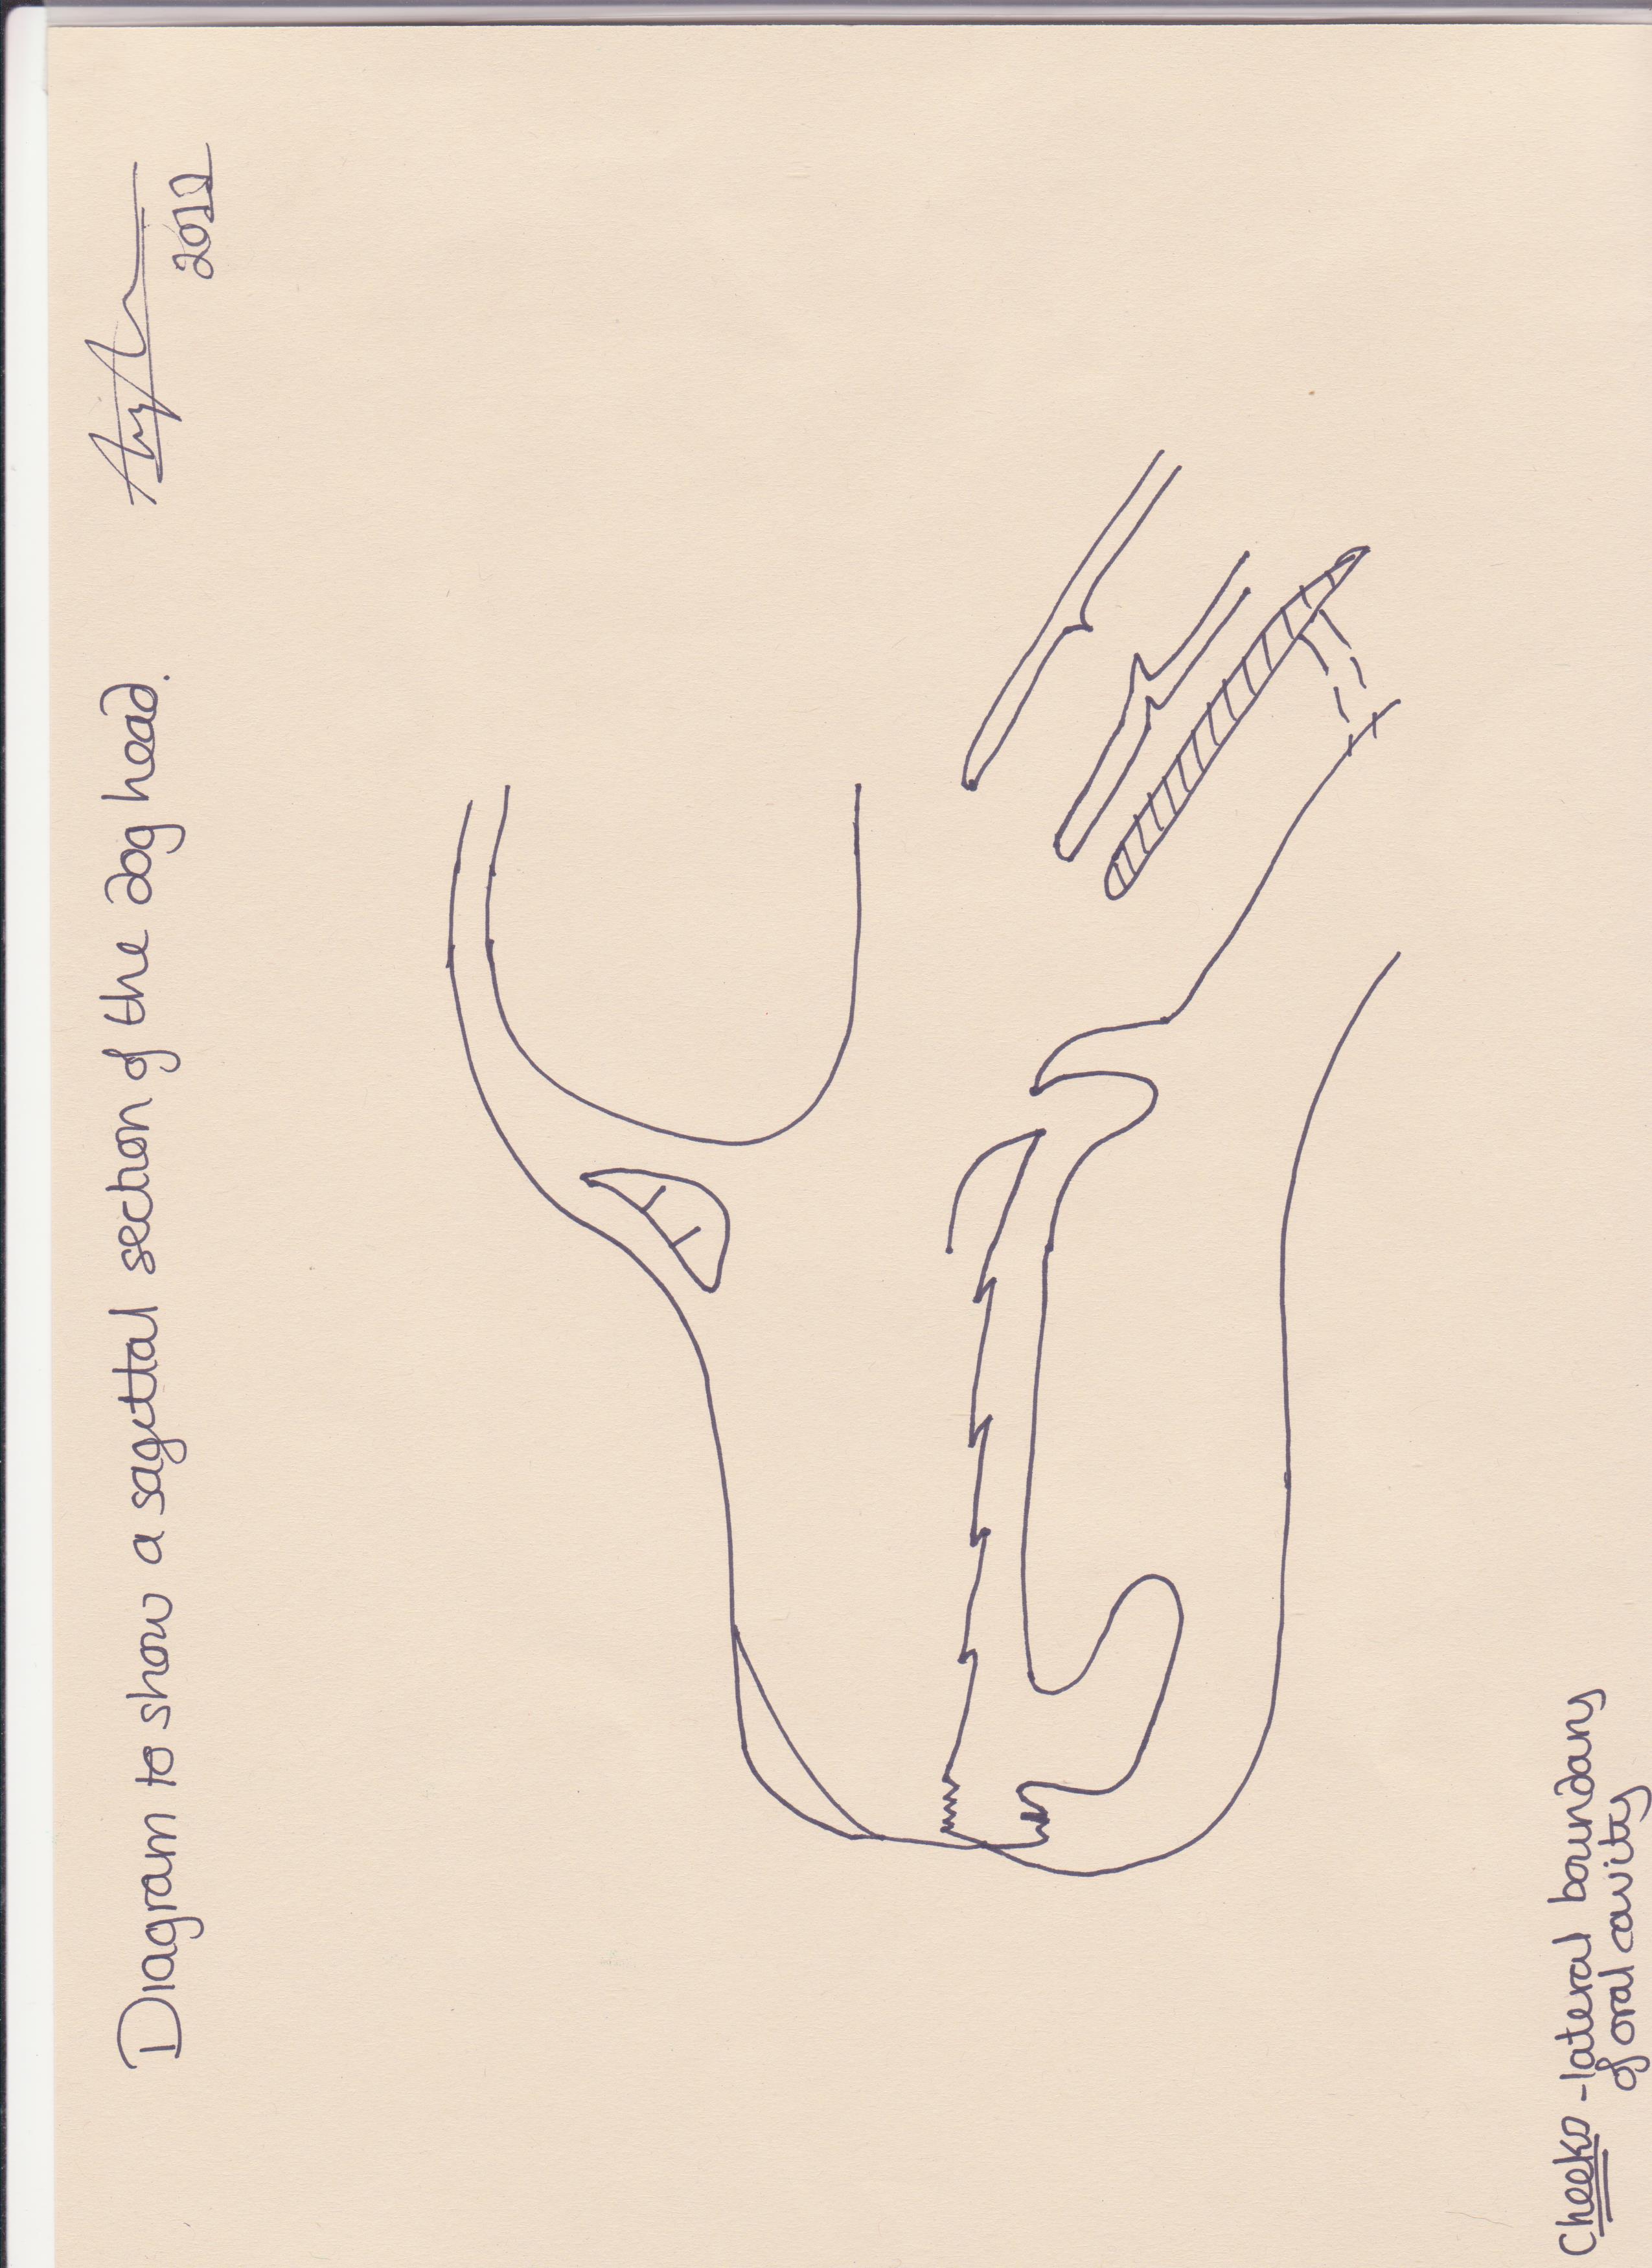 Diagram to show a sagittal section of the dog head.
2012
Cheeks - lateral boundary
of oral cavity